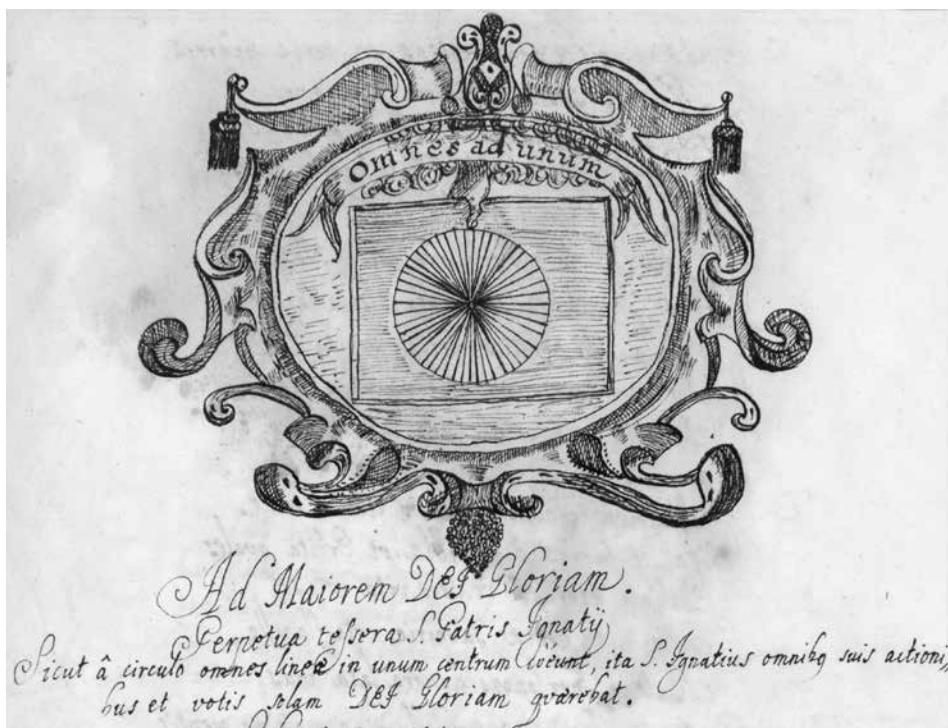 Omnes ad unum
Ad Maiorem DEI Gloriam.
Perpetua tessera S. Patris Ignatij
Sicut â circulo omnes lineæ in unum centrum coëunt, ita S. Ignatius omnibq suis actioni„
bus et votis solam DEI Gloriam quærebat.